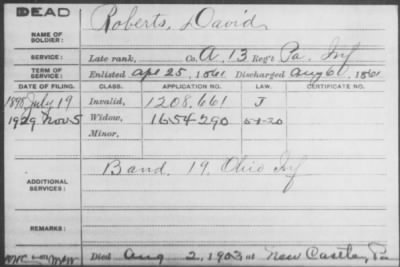 DEAD
NAME OF SOLDIER: Roberts, David
SERVICE: Late rank, Co. A. 13 Reg't Pa. Inf
TERM OF SERVICE: Enlisted Apl 25, 1861 Discharged Aug 6, 1861
DATE OF FILING. CLASS. APPLICATION NO. LAW. CERTIFICATE NO.
1898 July 19 Invalid, 1208.661 J
1929 Nov 5 Widow, 1654290 5-1-20
Minor,
ADDITIONAL SERVICES: Band. 19. Ohio Inf
REMARKS:
Died Aug 2, 1903 at New Castle, Pa